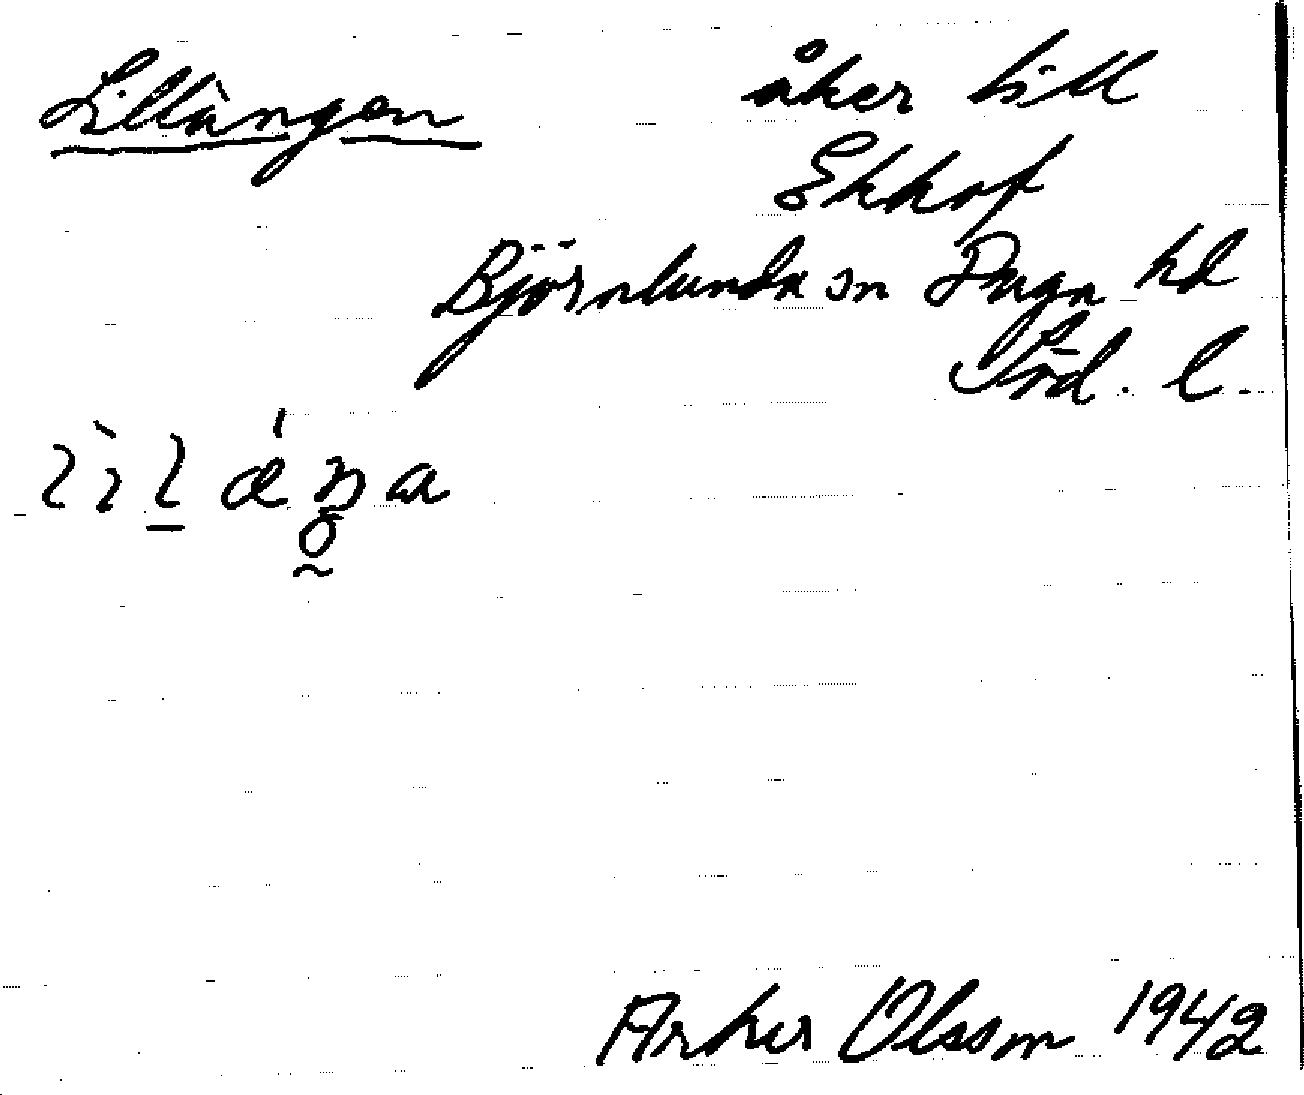 Lillängen åker till
Ekhof
Björnlunda sn Daga hd
Söd. l.
Arker Olsson 1942